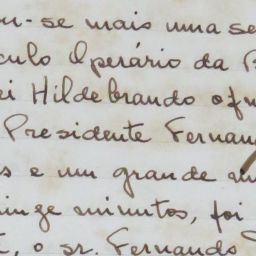 ou-se mais uma se
culo Operário da P
ei Hildebrando
Presidente Fernan
s e um grande
inze minutos, foi
o sr. Fernando